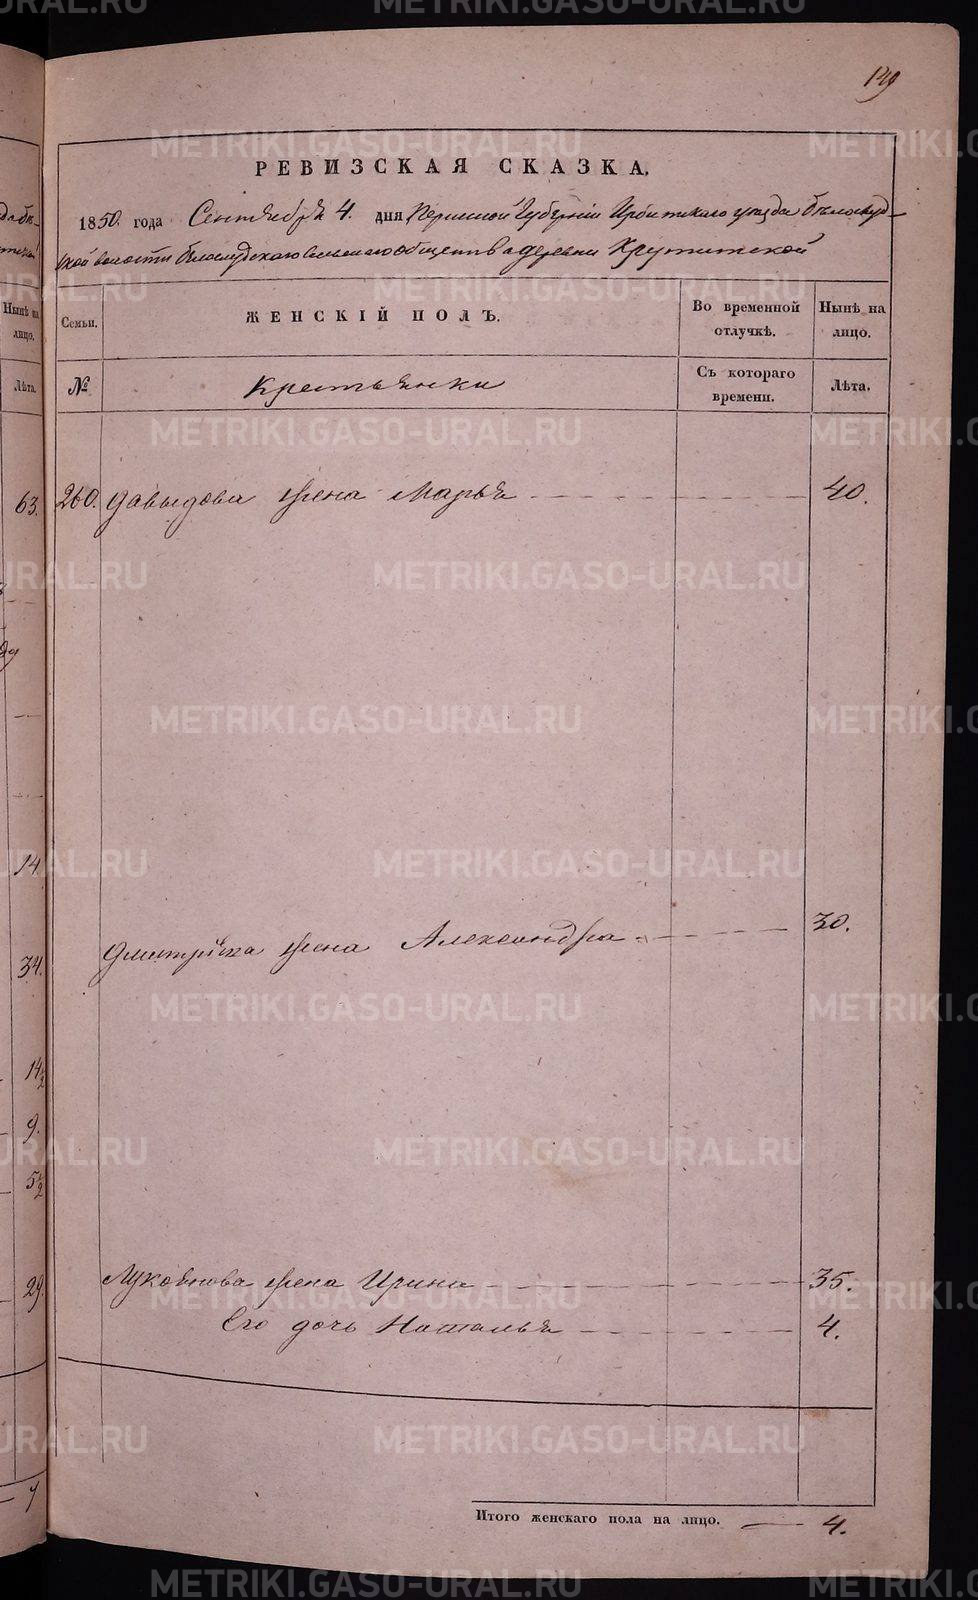 149
РЕВИЗСКАЯ СКАЗКА.
1850. года Сентября 4. дня Пермской Губерніи Ирбитскаго уѣзда Бѣлослуд-
ской волости Бѣлослудскаго сельскаго общества деревни Крутитской
Семьи. ЖЕНСКІЙ ПОЛЪ. Во временной отлучкѣ. Нынѣ на лицо.
№ Крестьянки Съ котораго времени. Лѣта.
260. Давыдова жена Марья 40.
Дмитріева жена Александра 30.
Лукоянова жена Ирина 35.
Его дочь Наталья 4.
Итого женскаго пола на лицо. 4.
Нынѣ на лицо.
Лѣта.
63.
14
34.
14 1/2
9.
5 1/2
29.
METRIKI.GASO-URAL.RU